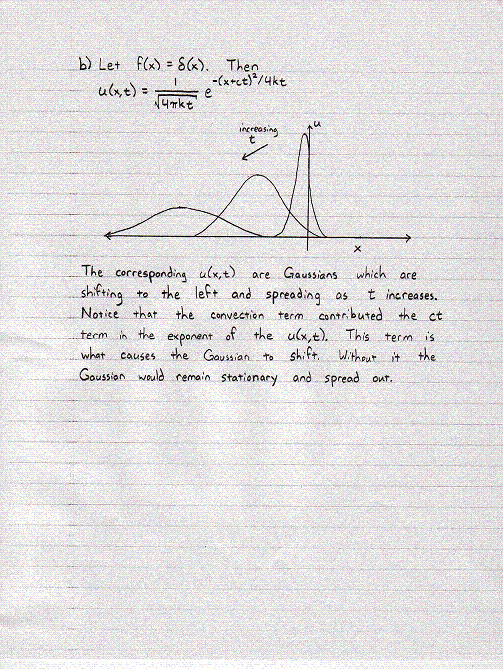 b) Let f(x) = δ(x). Then
u(x,t) = 1/√(4πkt) e^(-(x+ct)²/4kt)
increasing
t
u
x
The corresponding u(x,t) are Gaussians which are
shifting to the left and spreading as t increases.
Notice that the convection term contributed the ct
term in the exponent of the u(x,t). This term is
what causes the Gaussian to shift. Without it the
Gaussian would remain stationary and spread out.